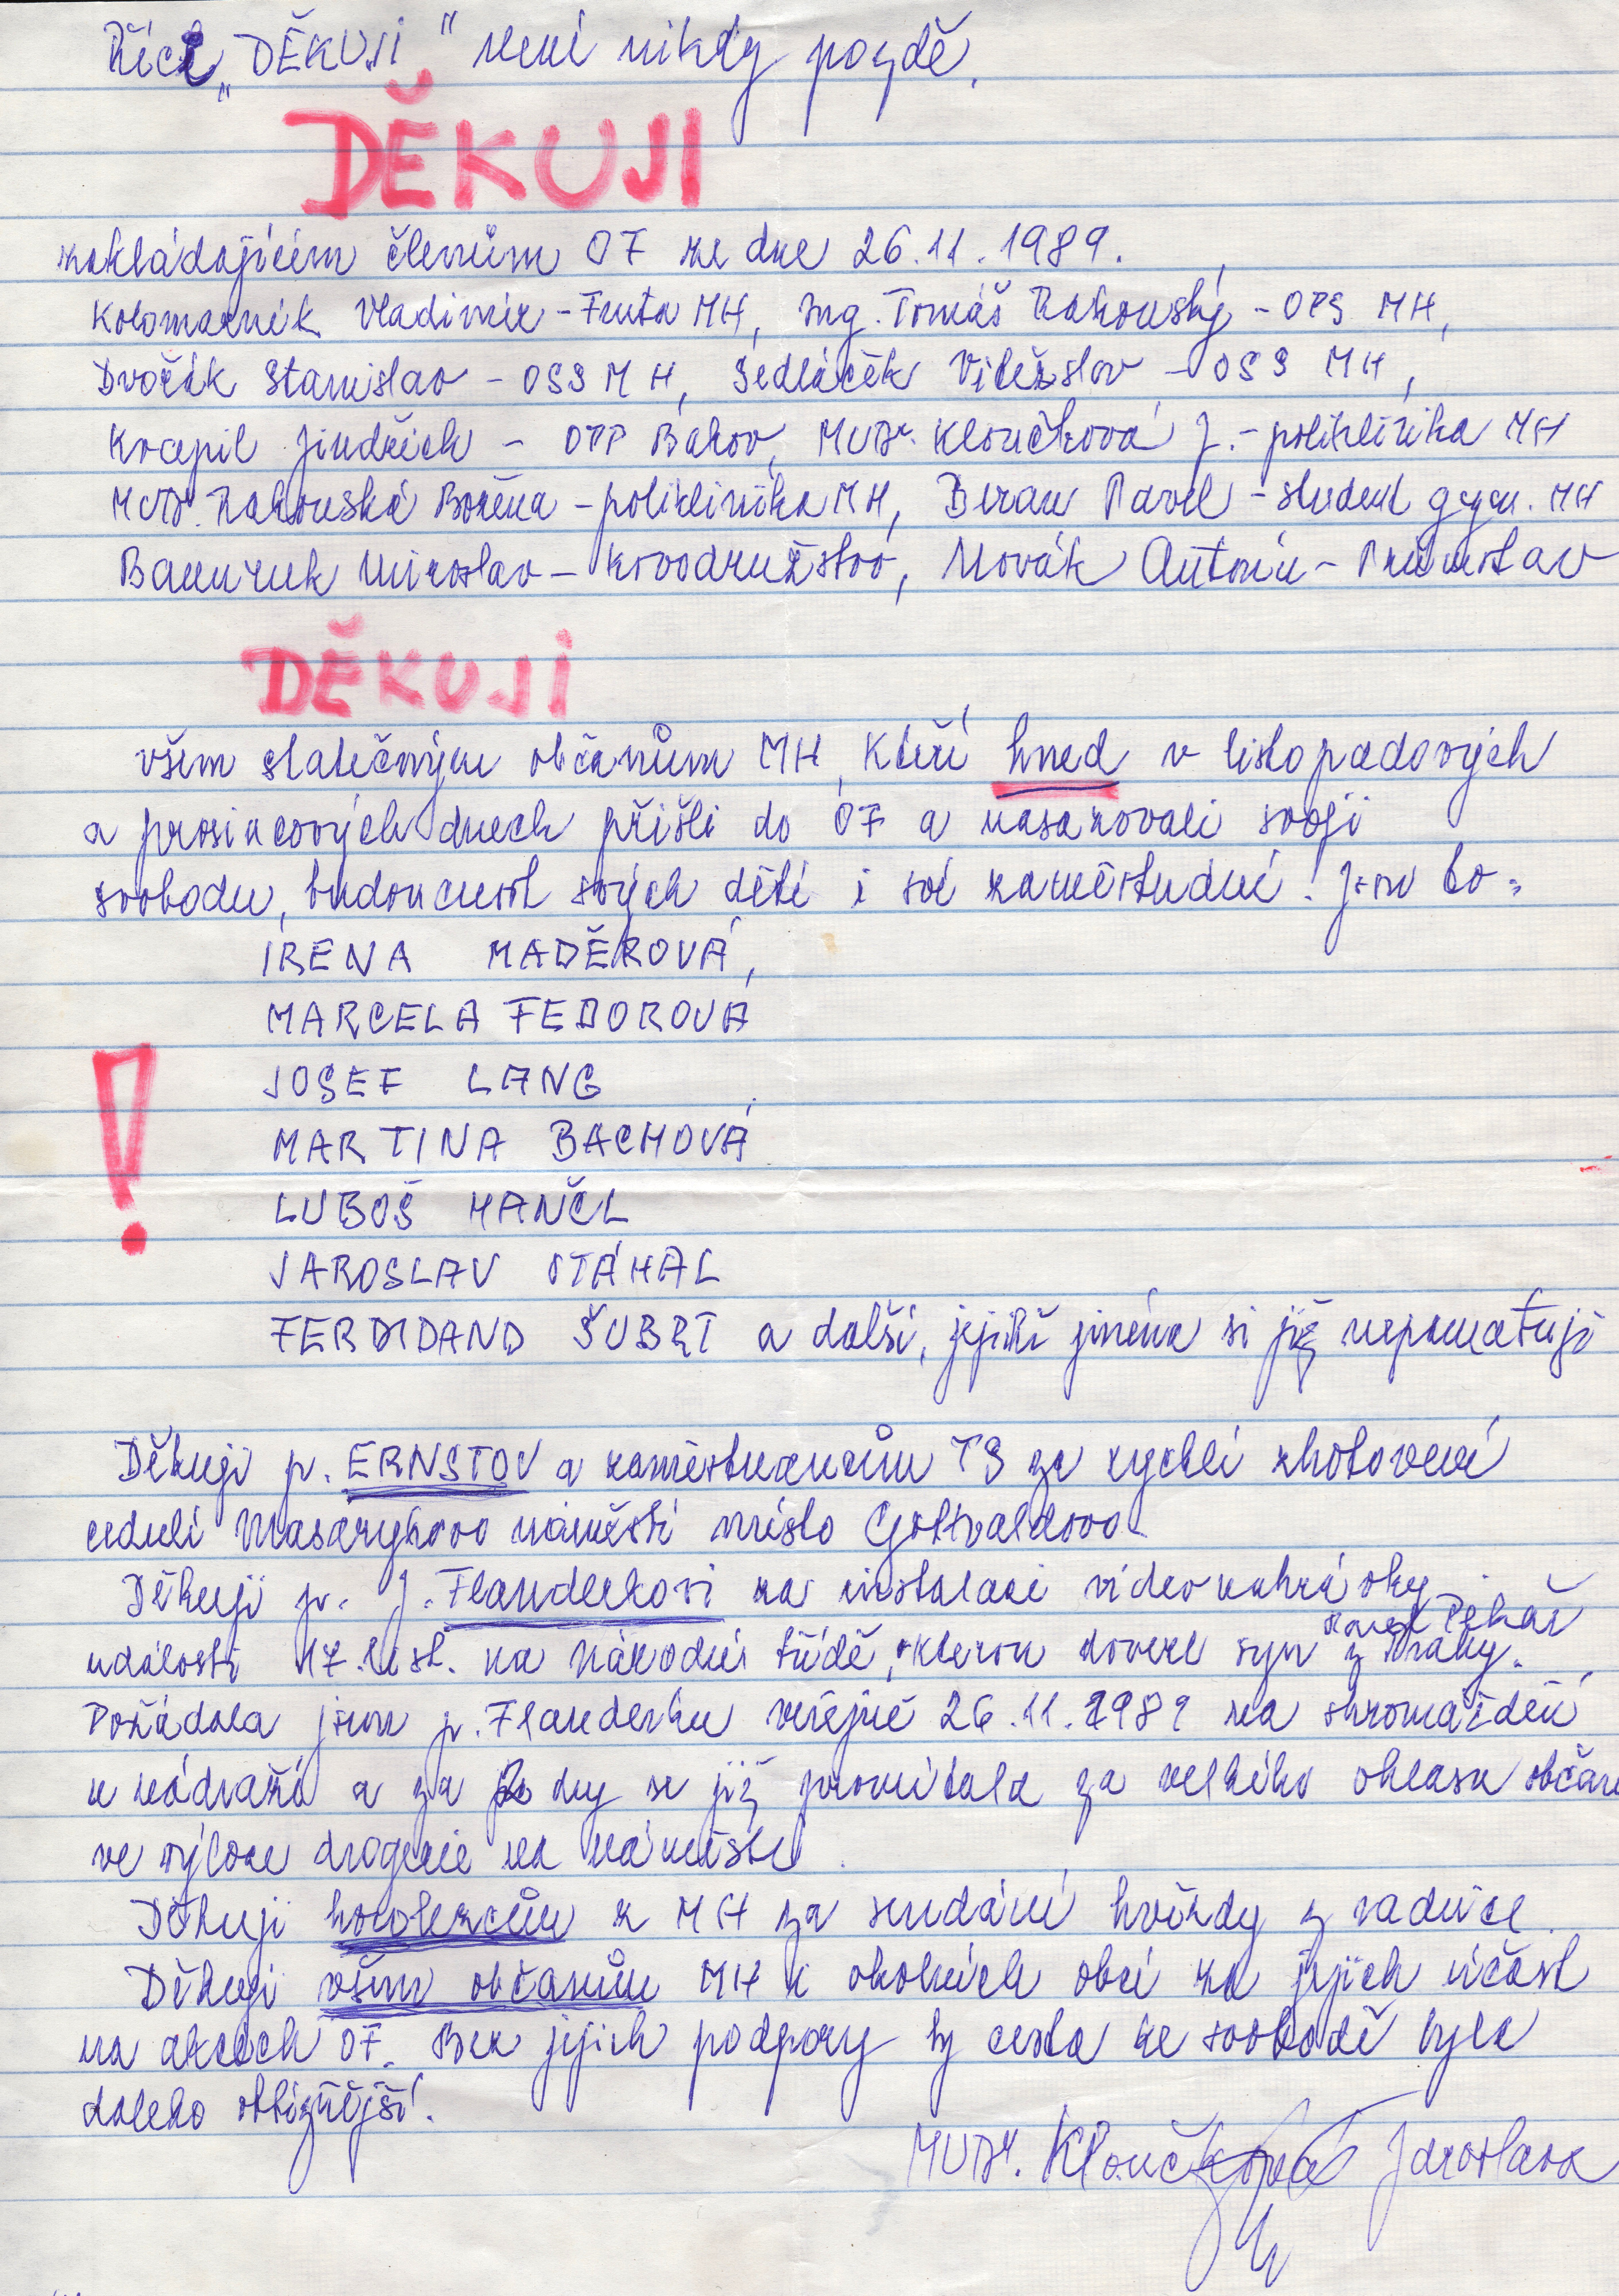 Říci „DĚKUJI" není nikdy pozdě.
DĚKUJI
zakládajícím členům OF ze dne 26.11.1989.
Kolomazník Vladimír - Fruta MH, Ing. Tomáš Rakouský - OPS MH,
Dvořák Stanislav - OSS MH, Sedláček Vítězslav - OSS MH,
Kvapil Jindřich - OPP Bakov, MUDr. Kloučková J. - poliklinika MH
MUDr. Rakouská Božena - poliklinika MH, Beran Pavel - student gym. MH
Miroslav - Kovodružstvo, Novák Antonín - Průmstav
DĚKUJI
všem statečným občanům MH, kteří hned v listopadových
a prosincových dnech přišli do OF a nasazovali svoji
svobodu, budoucnost svých dětí i své zaměstnání! Jsou to:
IRENA MADĚROVÁ,
MARCELA FEDOROVÁ
JOSEF LANG
MARTINA BACHOVÁ
LUBOŠ HANČL
JAROSLAV STÁHAL
!
FERDIDAND ŠUBRT a další, jejichž jména si již nepamatuji
Děkuji p. ERNSTOV a zaměstnancům TS za rychlé zhotovení
cedulí Masarykovo náměstí místo Gottvaldovo
Děkuji p. J. Flanderkovi za instalaci videonahrávky
Pekař
události 17. list. na Národní třídě, kterou dovezl syn z Prahy.
Požádala jsem p. Flanderku veřejně 26.11.1989 na shromáždění
u nádraží a za 2 dny se již promítala za velkého ohlasu občanů
ve výloze drogerie na náměstí.
Děkuji horolezcům z MH za sundání hvězdy z radnice.
Děkuji všem občanům MH i okolních obcí za jejich účast
na akcích OF. Bez jejich podpory by cesta ke svobodě byla
daleko obtížnější.
MUDr. Kloučková Jaroslava